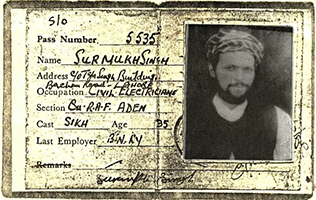 S/O
Pass Number 5535
Name SURMUKH SINGH
Address Building,
Road - LAHORE
Occupation CIVIL-ELECTRICIAN
Section R.A.F. ADEN
Cast SIKH Age 35
Last Employer B.N.RY
Remarks